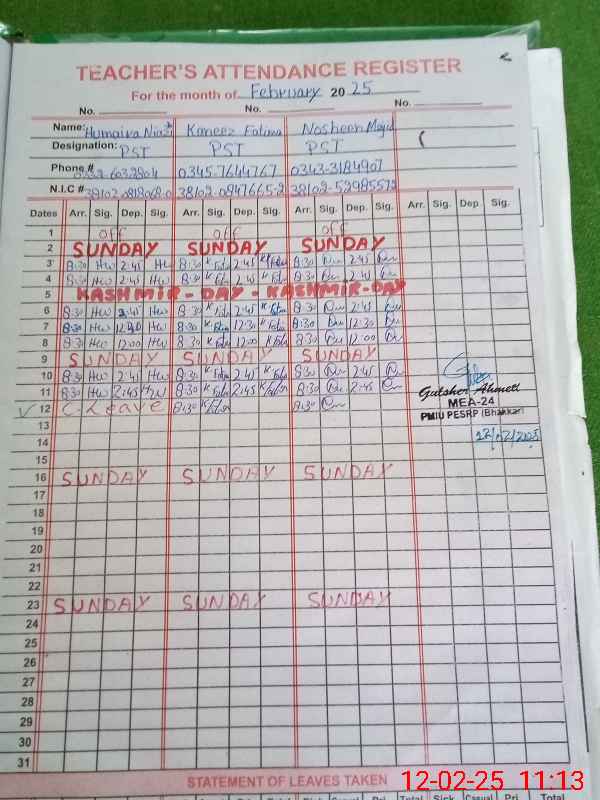 TEACHER'S ATTENDANCE REGISTER
For the month of February 2025
No. No. No.
Name: Humaira Niazi Kaneez Fatima Nosheen Majid
Designation: PST PST PST
Phone # 0345-7644767 0343-3184907
N.I.C # 38102-0947665-2
Dates Arr. Sig. Dep. Sig. Arr. Sig. Dep. Sig. Arr. Sig. Dep. Sig. Arr. Sig. Dep. Sig.
1 off off off
2 SUNDAY SUNDAY SUNDAY
3 8:30 HW 2:45 HW 8:30 2:45 8:30 2:45
4 8:30 HW 2:45 HW 8:30 2:45 8:30 2:45
5 KASHMIR - DAY - KASHMIR - DAY
6 8:30 HW 2:45 HW 8:30 2:45 8:30 2:45
7 8:30 HW 12:30 HW 8:30 12:30 8:30 12:30
8 8:30 HW 12:00 HW 8:30 12:00 8:30 12:00
9 SUNDAY SUNDAY SUNDAY
10 8:30 HW 2:45 HW 8:30 2:45 8:30 2:45
11 8:30 HW 2:45 HW 8:30 2:45 8:30 2:45
Gulsher Ahmed
MEA-24
12 C-Leave 8:30 8:30
PMIU PESRP (Bhakkar)
13
12/02/2025
14
15
16 SUNDAY SUNDAY SUNDAY
17
18
19
20
21
22
23 SUNDAY SUNDAY SUNDAY
24
25
26
27
28
29
30
31
STATEMENT OF LEAVES TAKEN
12-02-25 11:13
Total Sick Casual Pri. Total